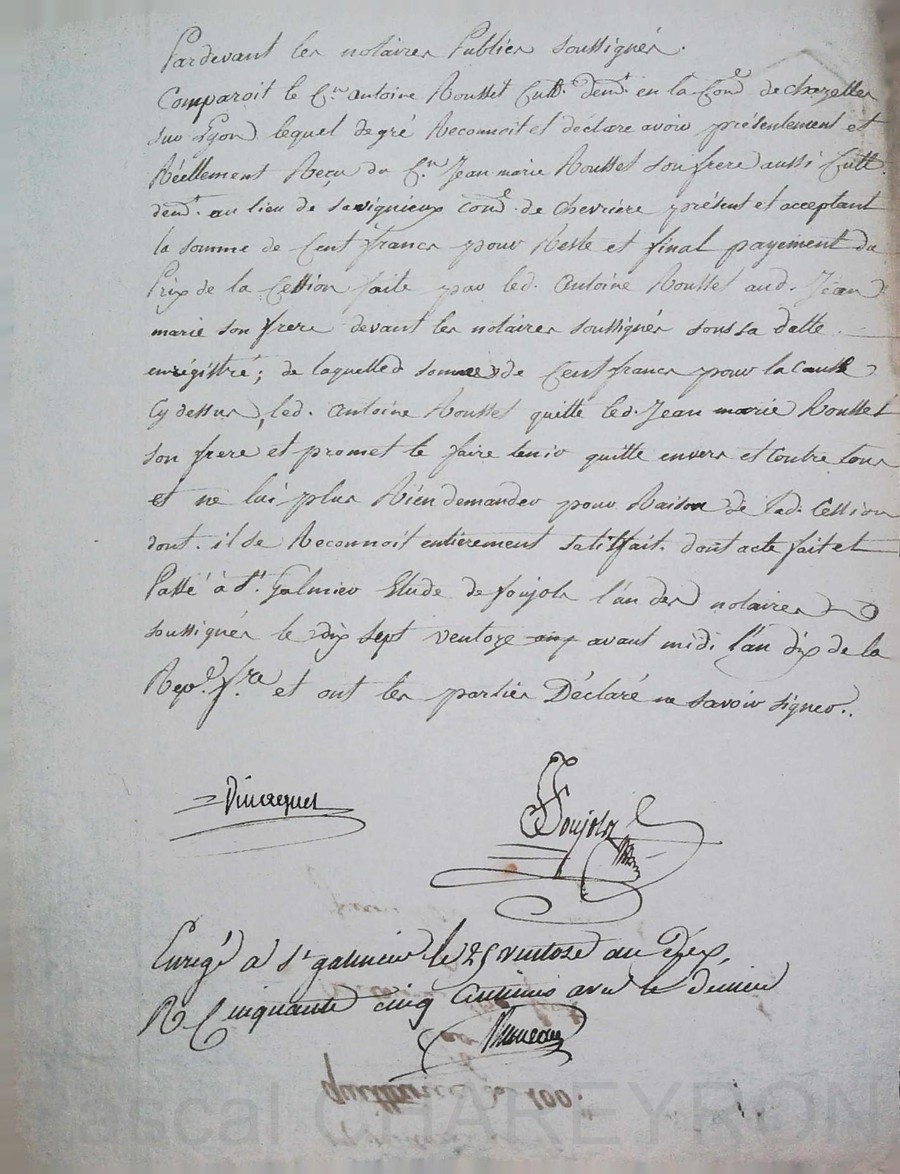 Pardevant les notaires Publics soussignés.
Comparoit le C.en antoine Rousset Cult.r dem.t en la Com.e de chazelles
sur Lyon lequel de gré Reconnoit et déclare avoir présentement et
Réellement Reçu du C.en Jean marie Rousset son frere aussi Cult.
dem.t au lieu de savignieux com.e de chevrière présent et acceptant
la somme de Cent francs pour Reste et final payement du
Prix de la Cession faite par led. antoine Rousset aud. Jean
marie son frere devant les notaires soussignés sous sa datte
enregistré; de laquelle somme de Cent francs pour la cause
Cy dessus, led. antoine Rousset quitte led. Jean marie Rousset
son frere et promet le faire tenir quitte envers et contre tous
et ne lui plus Rien demander pour Raison de lad. Cession
dont il se Reconnoit entièrement satisfait. dont acte fait et
Passé à S.t Galmier Etude de foujols l'un des notaires
soussignés le dix sept ventoze avant midi l'an dix de la
Rep.e f.re et ont les parties Déclaré ne savoir signer..
Foujols
Enregé a st galmier le 25 ventoze an Dix,
R Cinquante cinq Centimes avec le décime
quittance de 100.
Pascal CHAREYRON